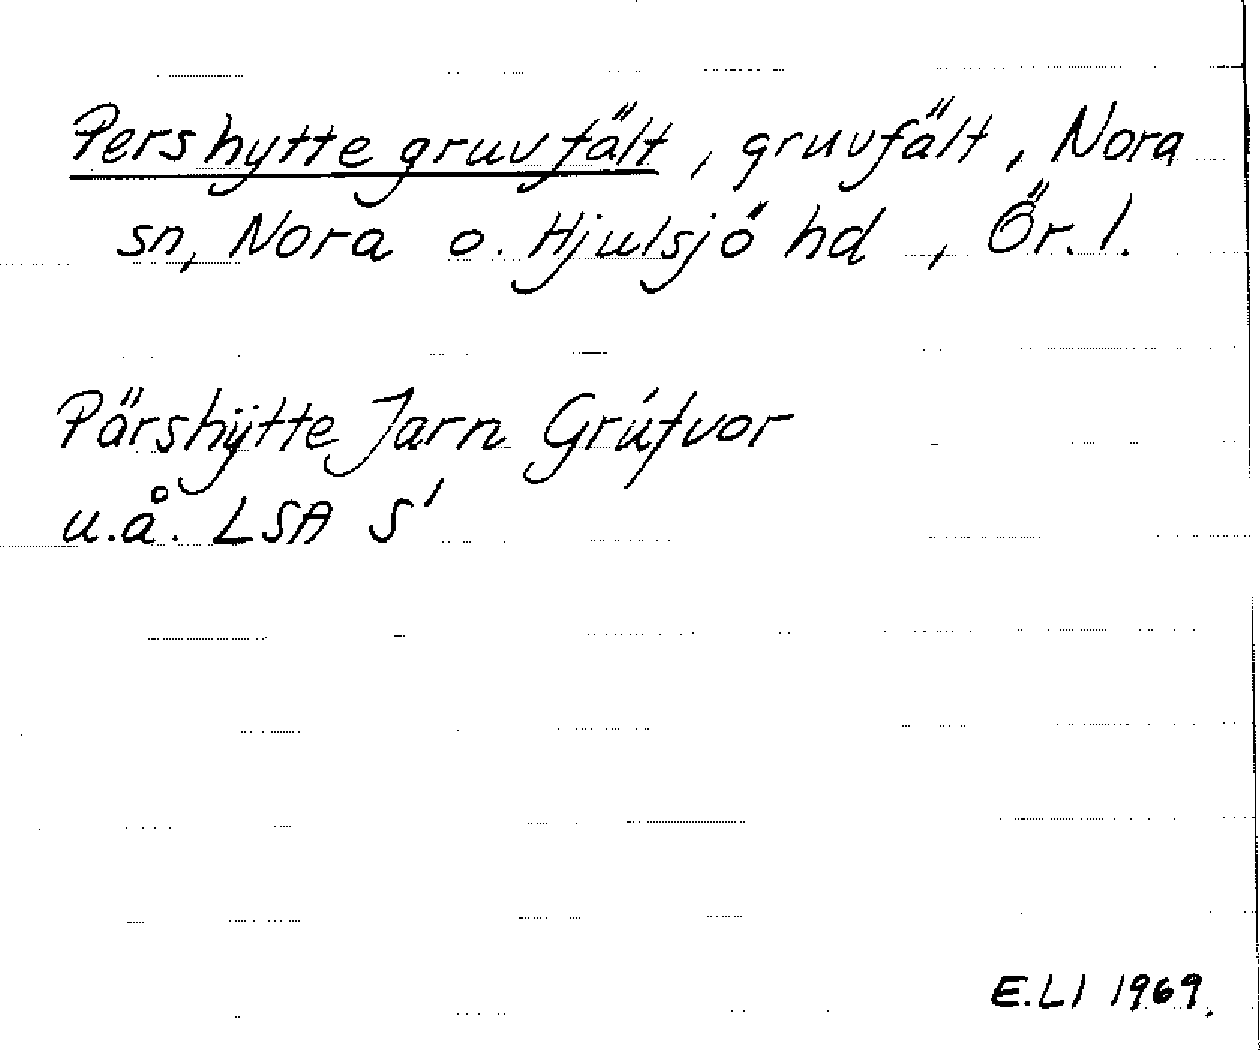 Pershytte gruvfält, gruvfält, Nora
sn, Nora o. Hjulsjö hd, Ör. l.
Pärshÿtte Jarn Grúfvor
u.å. LSA S'
E.LI 1969.